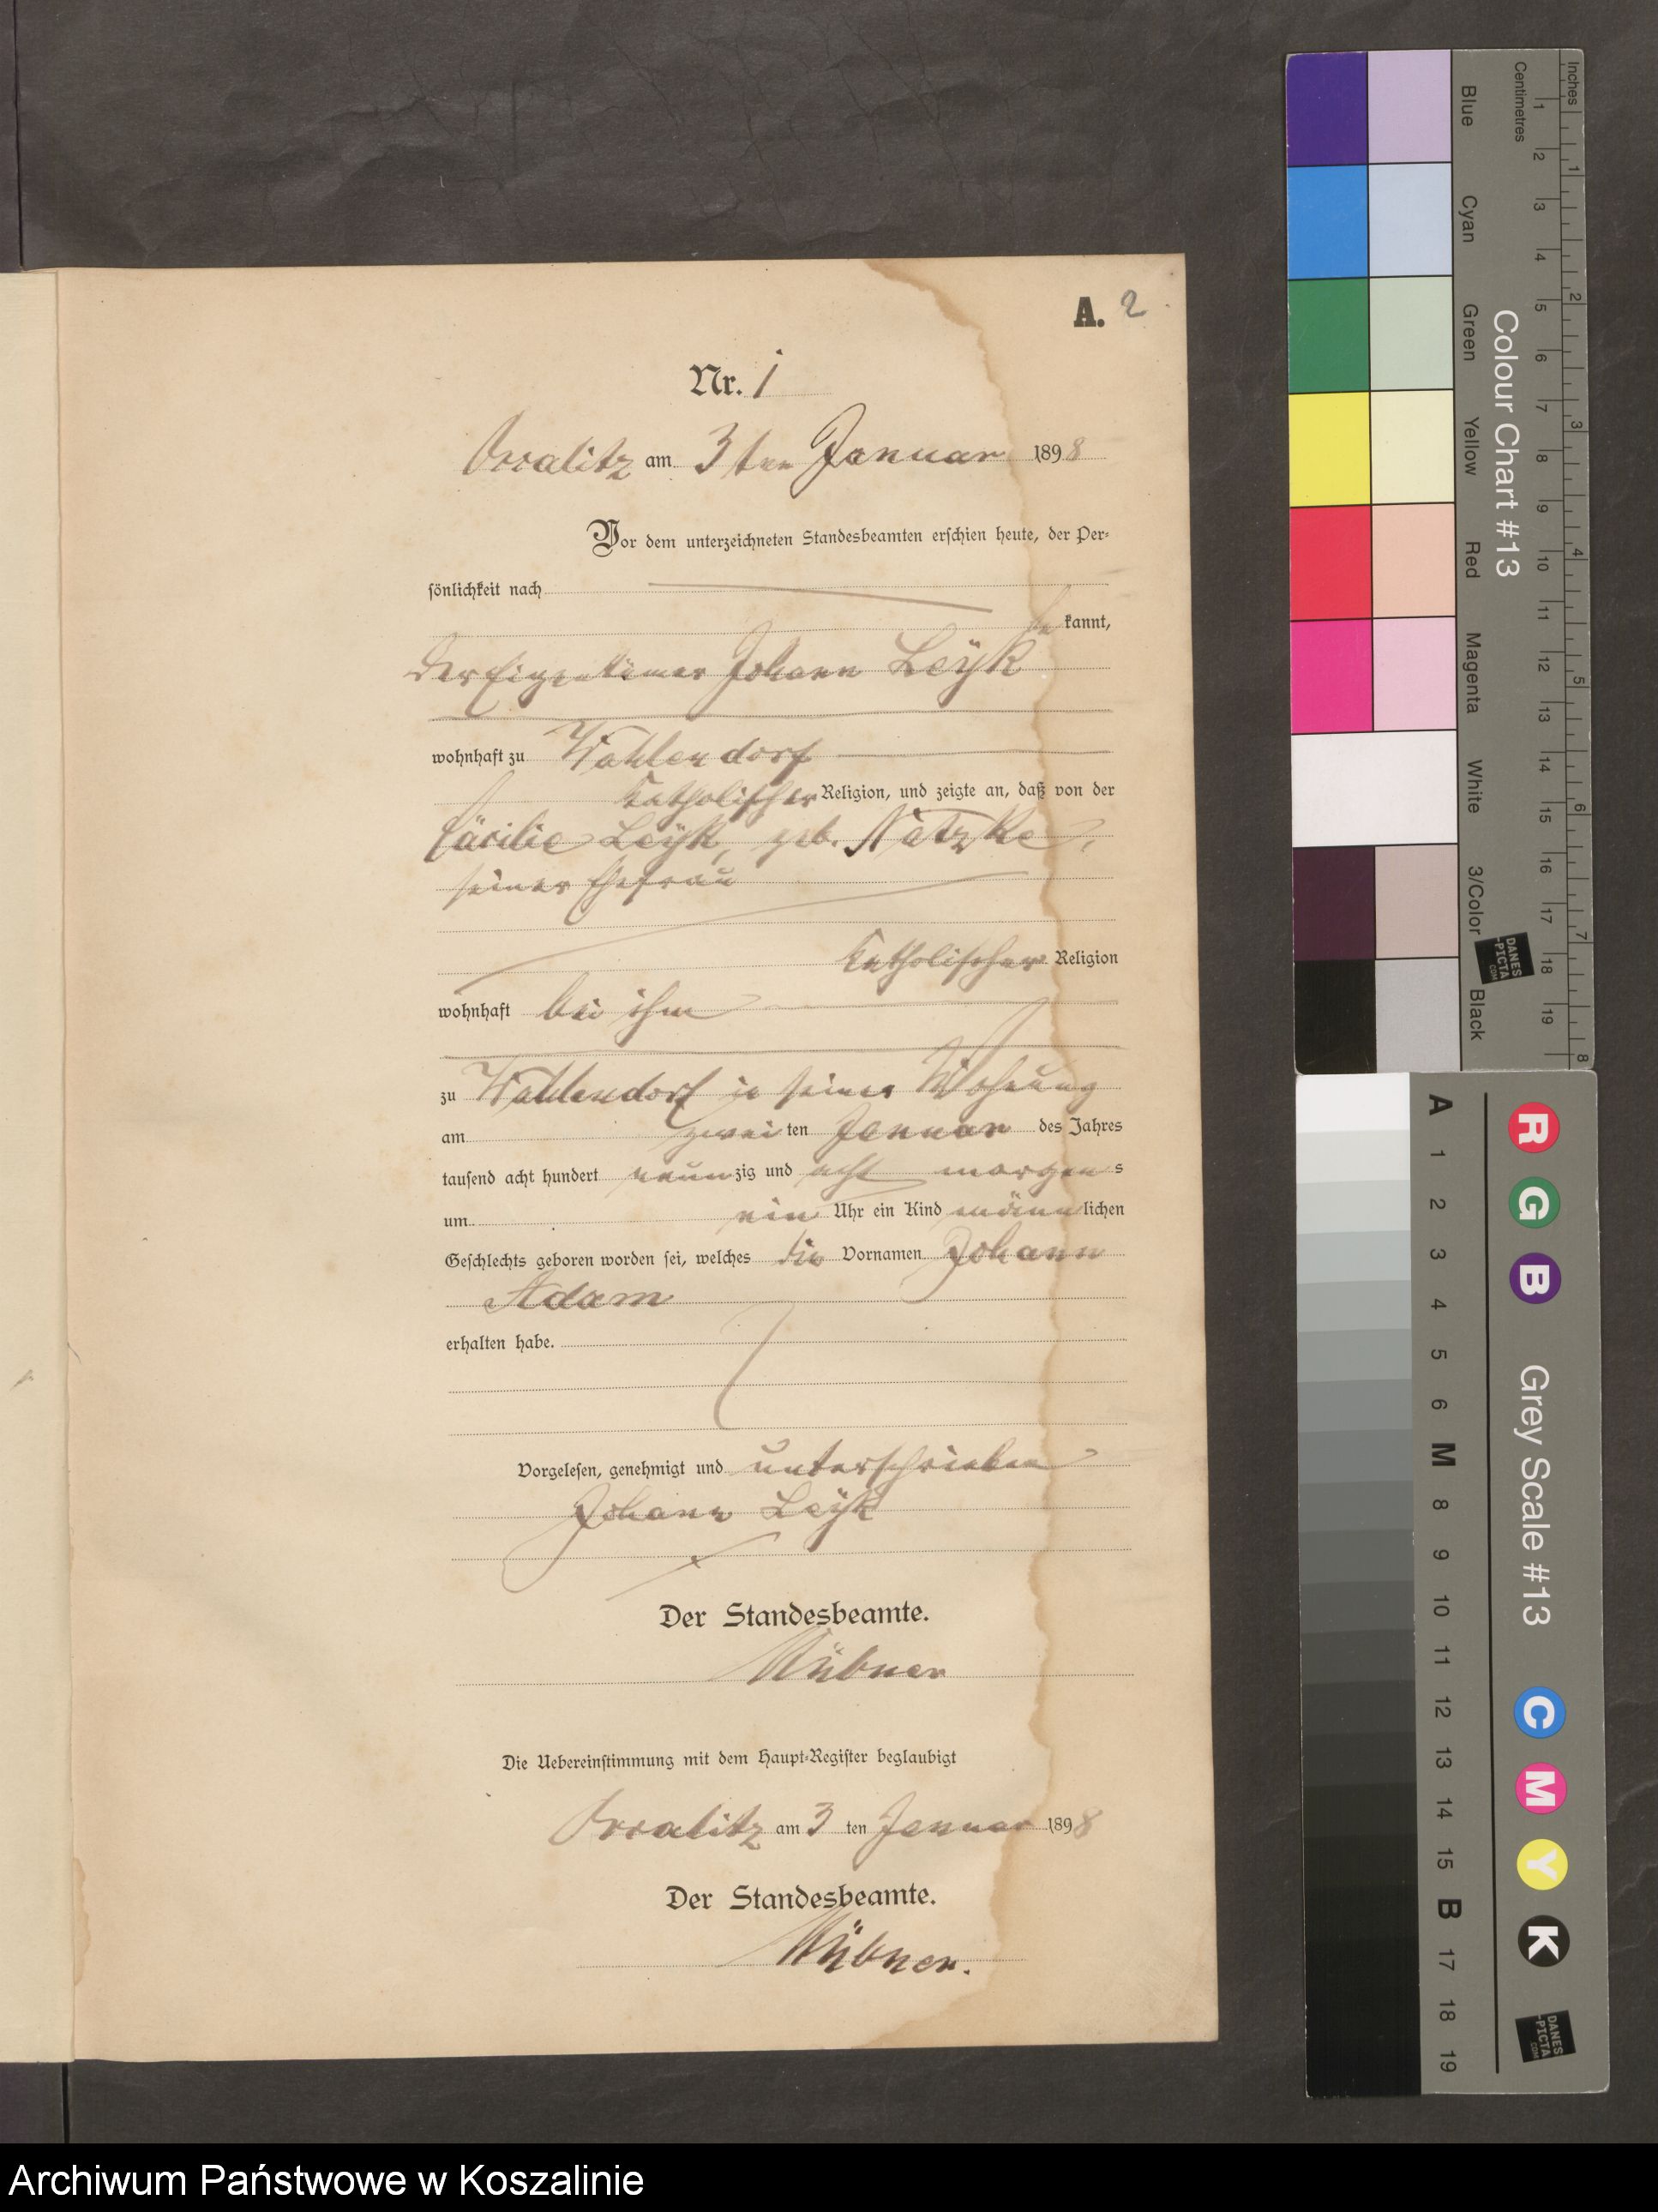 A. 2
Nr. 1
am 3ten Januar 1898
Vor dem unterzeichneten Standesbeamten erschien heute, der Per-
sönlichkeit nach
be kannt,
der Eigentümer Johann Leÿk
wohnhaft zu Wahlendorf
katholischer Religion, und zeigte an, daß von der
Cäcilie Leÿk, geb. Natzke,
seiner Ehefrau
katholischer Religion
wohnhaft bei ihm
zu Wahlendorf in seiner Wohnung
am zwei ten Januar des Jahres
tausend acht hundert neun zig und acht morgen s
um ein Uhr ein Kind männ lichen
Geschlechts geboren worden sei, welches die Vornamen Johann
Adam
erhalten habe.
Vorgelesen, genehmigt und unterschrieben
Johann Leÿk
Der Standesbeamte.
Die Uebereinstimmung mit dem Haupt-Register beglaubigt
am 3 ten Januar 1898
Der Standesbeamte.
Inches 1 2 3 4 5 6 7 8
Centimetres 1 2 3 4 5 6 7 8 9 10 11 12 13 14 15 16 17 18 19
Colour Chart #13
Blue Cyan Green Yellow Red Magenta White 3/Color Black
DANES
-PICTA
.COM
Grey Scale #13
R G B C M Y K
A 1 2 3 4 5 6 M 8 9 10 11 12 13 14 15 B 17 18 19
DANES
-PICTA
.COM
Archiwum Państwowe w Koszalinie